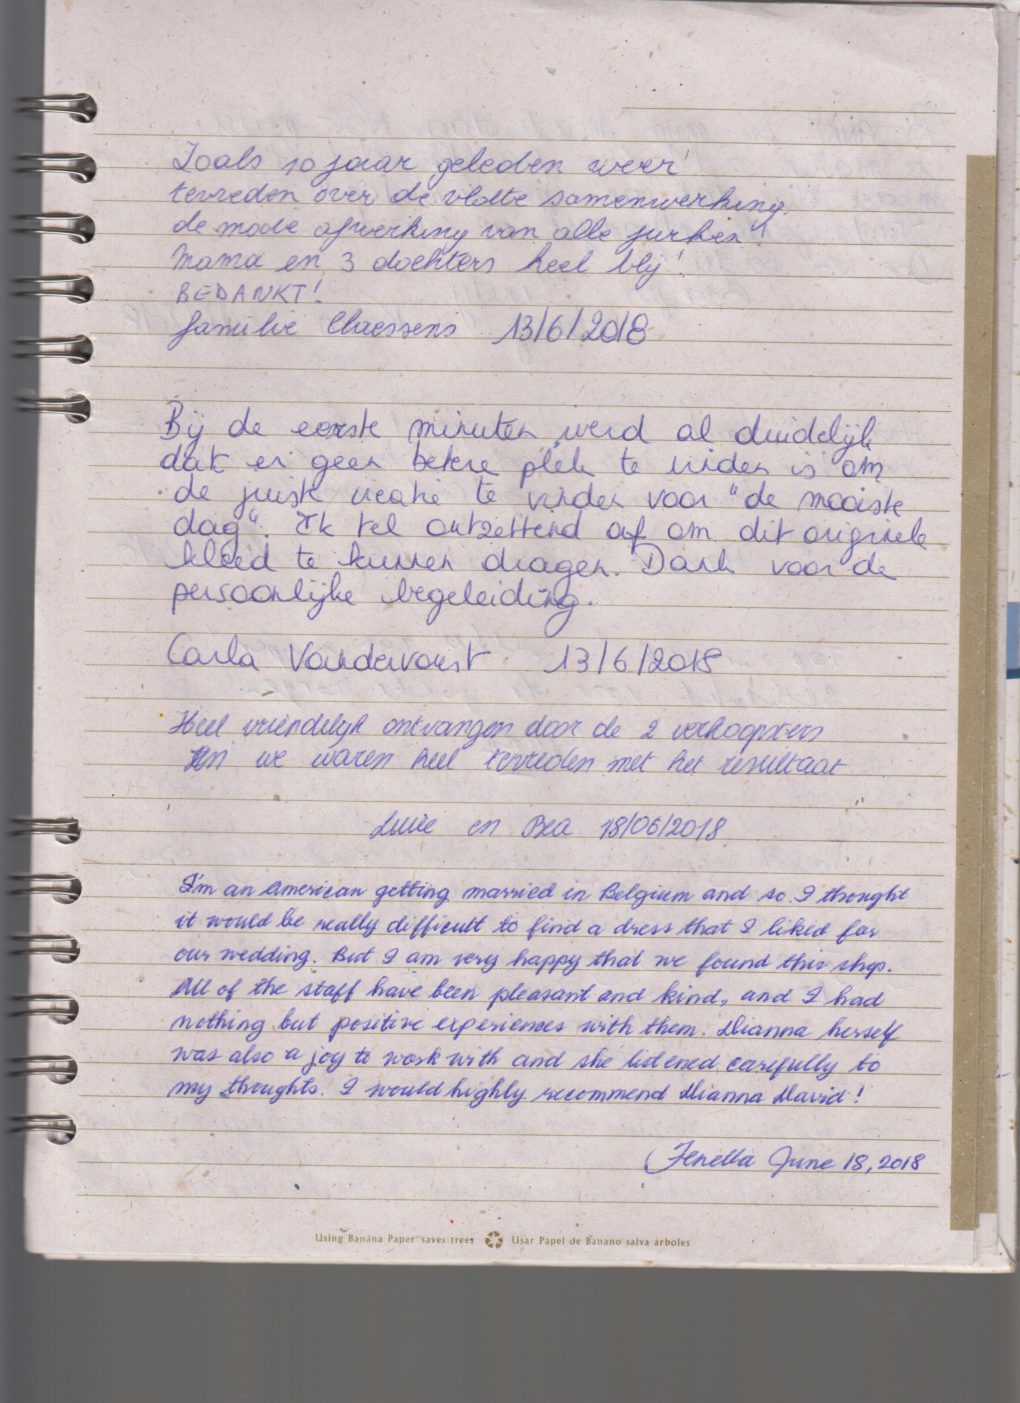 Zoals 10 jaar geleden weer!
tevreden over de vlotte samenwerking,
de mooie afwerking van alle jurken!
Mama en 3 dochters heel blij!
BEDANKT!
familie Claessens 13/6/2018
Bij de eerste minuten werd al duidelijk
dat er geen betere plek te vinden is om
de juiste creatie te vinden voor "de mooiste
dag". Ik tel ontzettend af om dit originele
kleed te kunnen dragen. Dank voor de
persoonlijke begeleiding.
Carla Vandervoort 13/6/2018
Heel vriendelijk ontvangen door de 2 verkoopsters
En we waren heel tevreden met het resultaat
en Bea 18/06/2018
I'm an American getting married in Belgium and so I thought
it would be really difficult to find a dress that I liked for
our wedding. But I am very happy that we found this shop.
All of the staff have been pleasant and kind, and I had
nothing but positive experiences with them. Dianna herself
was also a joy to work with and she listened carefully to
my thoughts. I would highly recommend Dianna David!
Fenella June 18, 2018
Using Banana Paper saves trees Usar Papel de Banano salva árboles